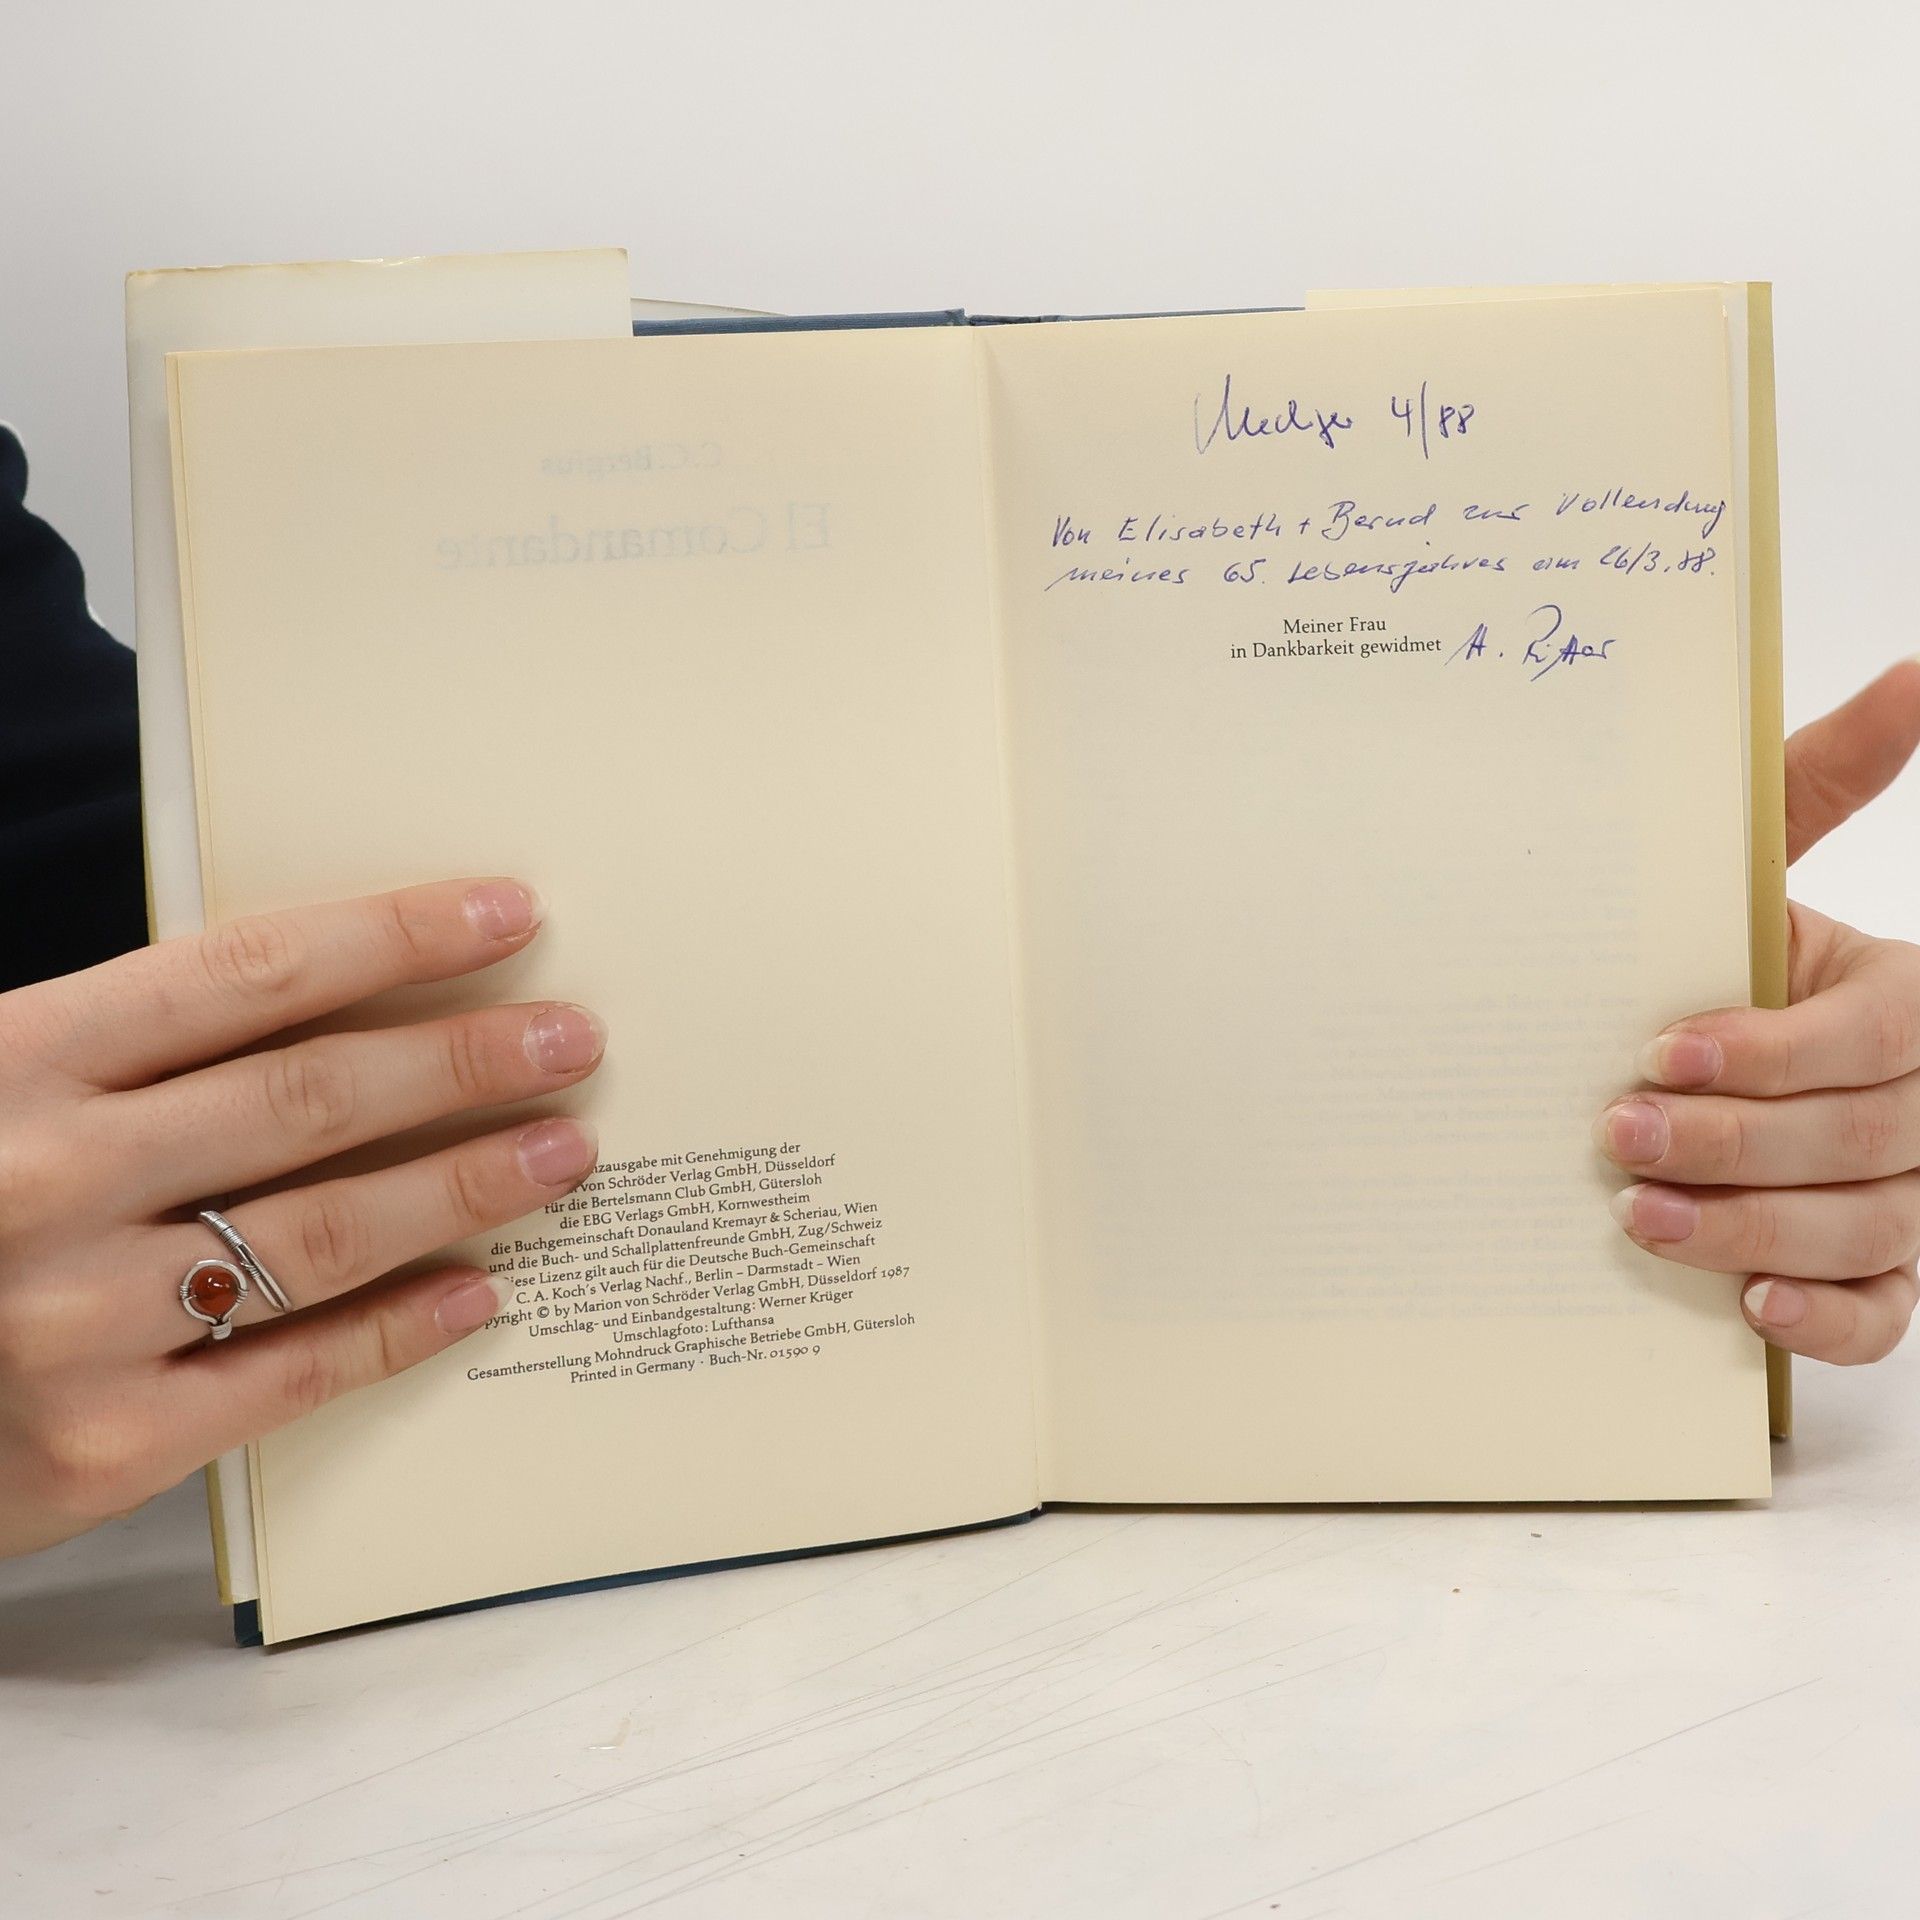 C.C. Bergius
El Comandante
nzausgabe mit Genehmigung der
von Schröder Verlag GmbH, Düsseldorf
für die Bertelsmann Club GmbH, Gütersloh
die EBG Verlags GmbH, Kornwestheim
die Buchgemeinschaft Donauland Kremayr & Scheriau, Wien
und die Buch- und Schallplattenfreunde GmbH, Zug/Schweiz
iese Lizenz gilt auch für die Deutsche Buch-Gemeinschaft
C. A. Koch's Verlag Nachf., Berlin – Darmstadt – Wien
pyright © by Marion von Schröder Verlag GmbH, Düsseldorf 1987
Umschlag- und Einbandgestaltung: Werner Krüger
Umschlagfoto: Lufthansa
Gesamtherstellung Mohndruck Graphische Betriebe GmbH, Gütersloh
Printed in Germany · Buch-Nr. 01590 9
4/88
Von Elisabeth + Bernd zur Vollendung
meines 65. Lebensjahres am 26/3.88.
Meiner Frau
in Dankbarkeit gewidmet
H. Ritter